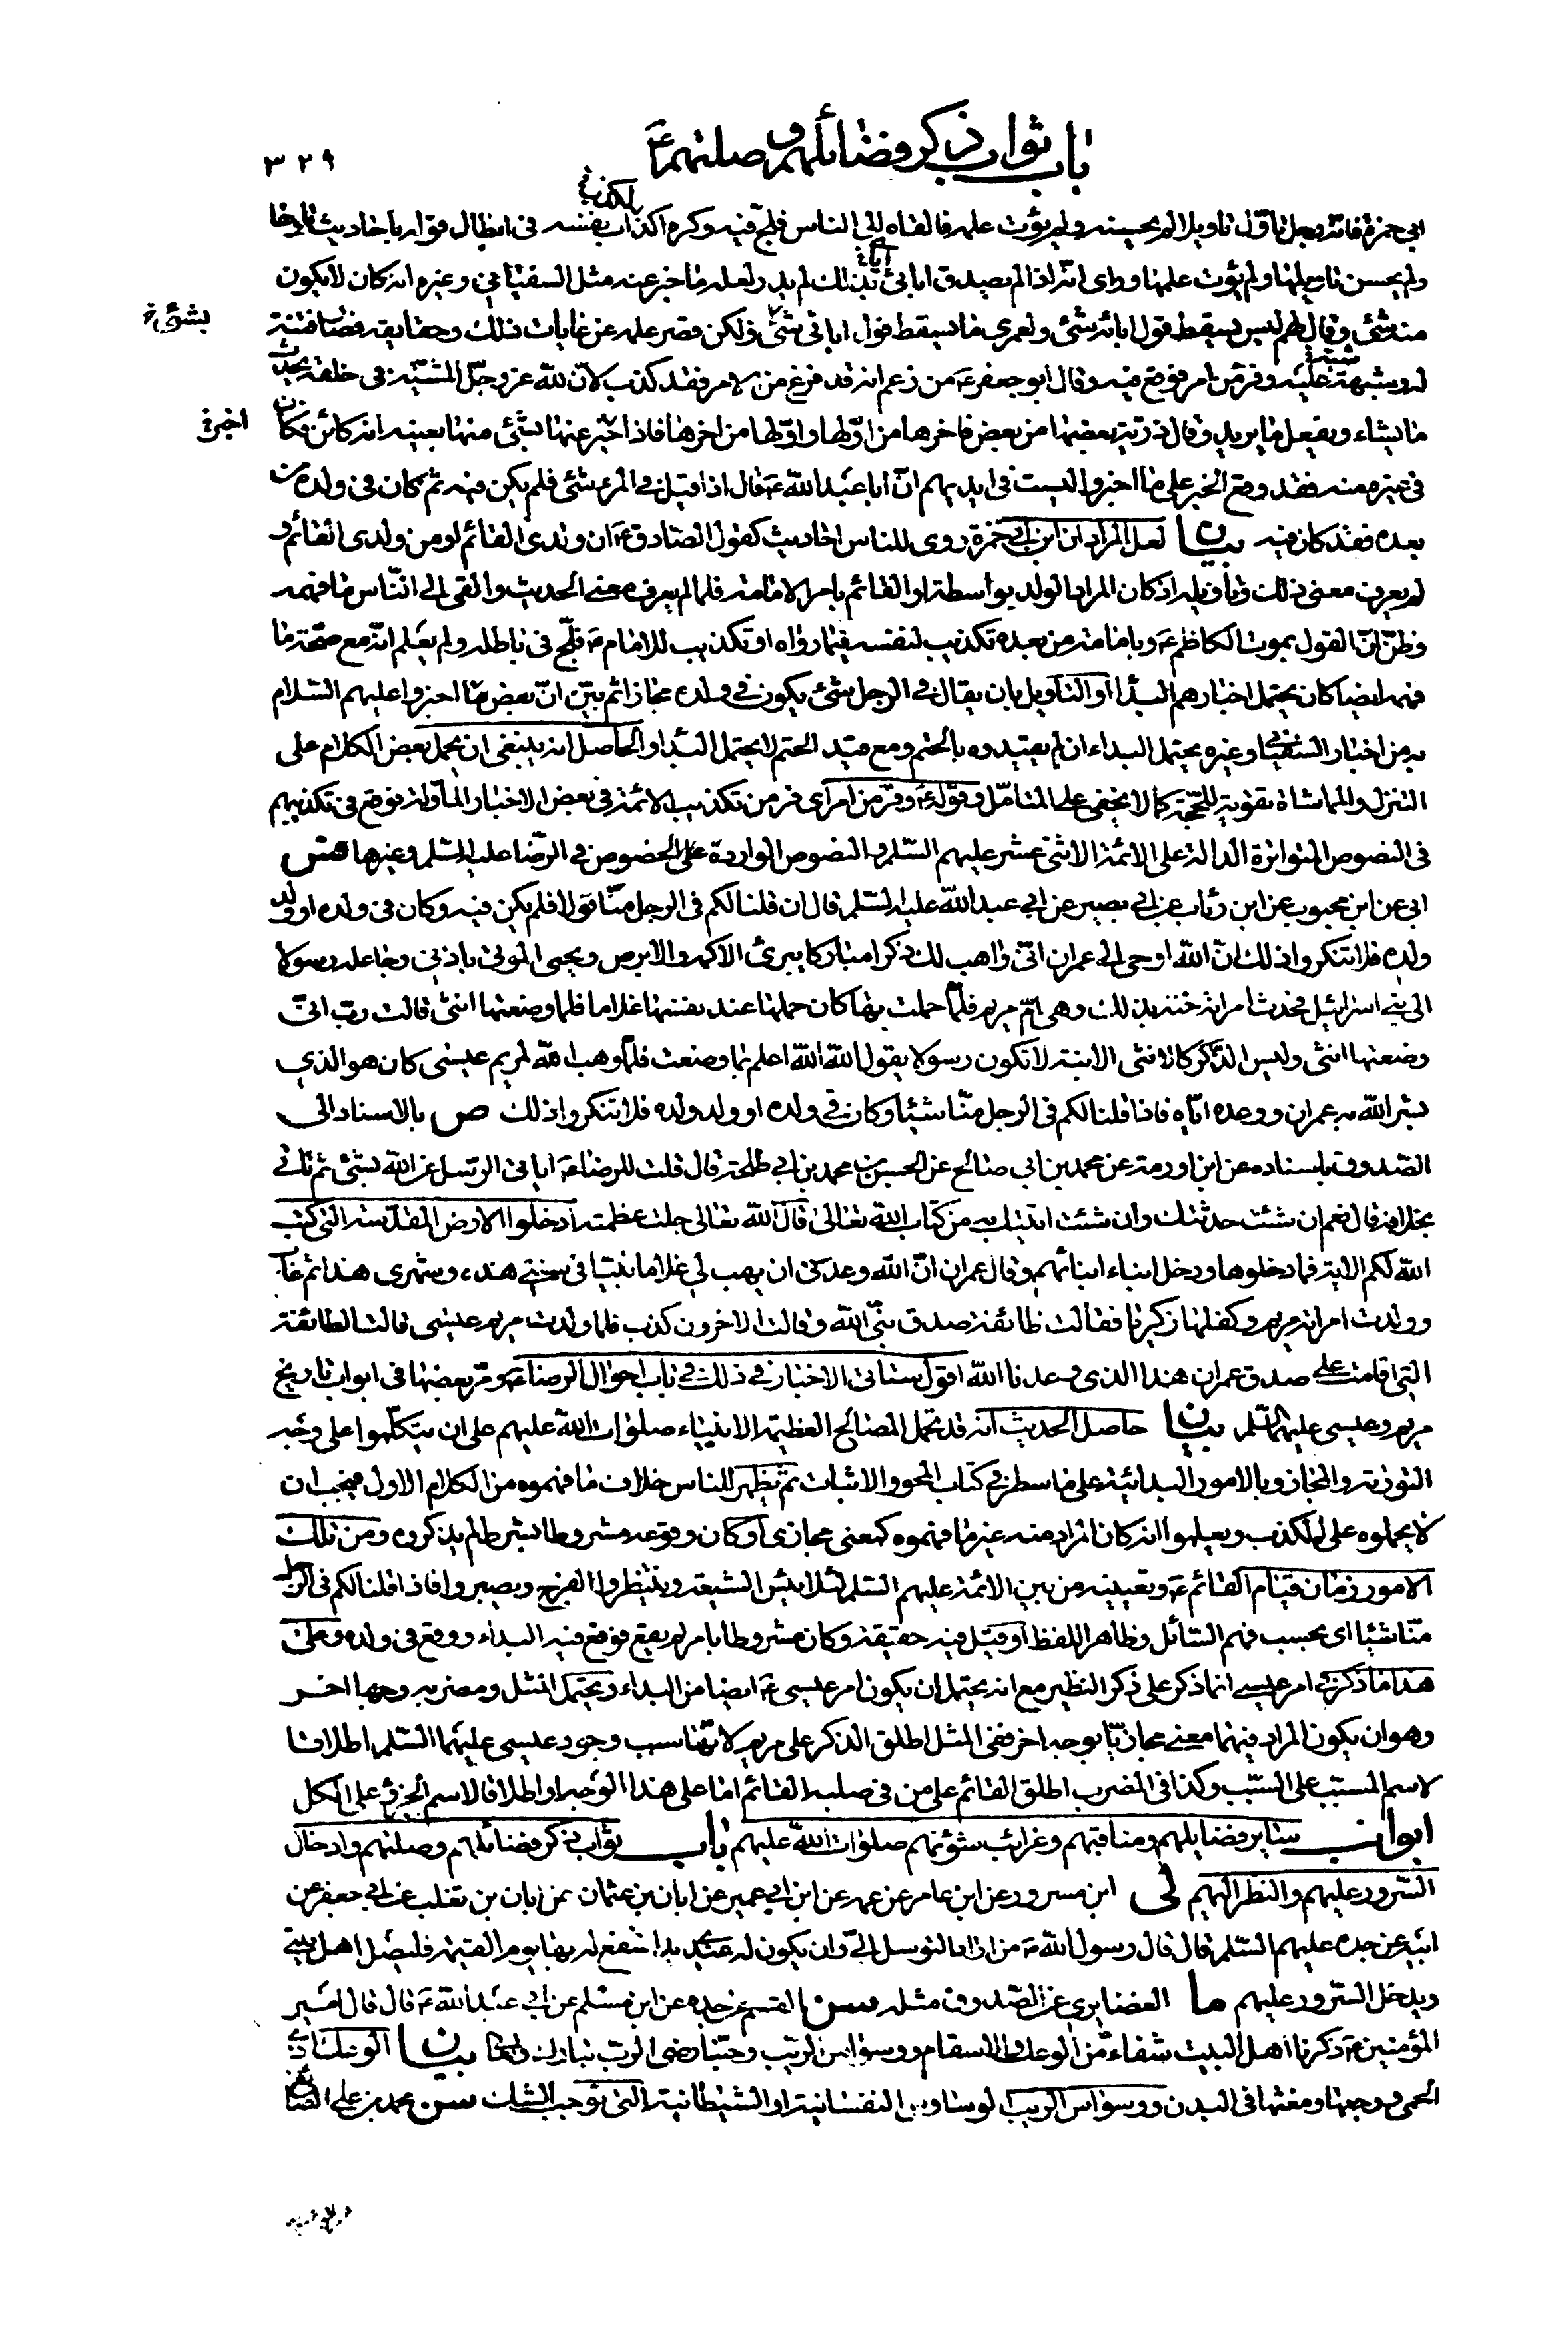 باب ثواب ذكر فضائلهم و صلتهم ع
٣٢٩
ابي حمزة فانه رجل تاوّل تاويلا لم يحسنه ولم يؤت علمه فالقاه الى الناس فلجّ فيه وكره اكذاب نفسه في ابطال قوله باحاديث تاولها
لكذب
ولم يحسن تاويلها ولم يؤت علمها وراى انه اذا لم يصدق ابائي بذلك لم يدر لعله ما خبر عنه مثل السفياني وغيره انه كان لا يكون
منه شئ وقال لهم ليس يسقط قول ابائه شئ ولعمري ما يسقط قول ابائي شئ ولكن قصر علمه عن غايات ذلك وحقايقه فصا فتنة
بشئ خ
له وشبهة عليه وفرّ من امر فوقع فيه وقال ابو جعفر ع من زعم انه قد فرغ من الامر فقد كذب لان لله عز وجل المشيّة في خلقه يحدث
ما يشاء ويفعل ما يريد وقال ذرّية بعضها من بعض فاخرها من اوّلها واوّلها من اخرها فاذا خبّر عنها بشئ منها بعينه انه كائن فكان
اخبر خ
في غيره منه فقد وقع الخبر على ما اخبروا اليست في ايديهم انّ ابا عبد الله ع قال اذا قيل في المرء شئ فلم يكن فيه ثم كان في ولده من
بعده فقد كان فيه بيان لعل المراد ان ابن ابي حمزة روى للناس احاديث كقول الصّادق ع ان ولدي القائم او من ولدي القائم و
لم يعرف معنى ذلك وتاويله اذ كان المراد الولد بواسطة او القائم بامر الامامة فلما لم يعرف معنى الحديث والقى الى النّاس ما فهمه
وظنّ انّ القول بموت الكاظم ع وبامامة من بعده تكذيب لنفسه فيما رواه او تكذيب للامام ع فلجّ في باطله ولم يعلم انّه مع صحّة ما
فهمه ايضا كان يحتمل اخبارهم البداء او التاويل بان يقال في الرجل شئ يكون في ولده مجازا ثم بيّن انّ بعض ما اخبروا عليهم السّلام
به من اخبار السفياني وغيره يحتمل البداء ان لم يقيدوه بالحتم ومع قيد الحتم لا يحتمل البداء والحاصل انه ينبغي ان يحمل بعض الكلام على
التنزل والمماشاة تقوية للحجّة كما لا يخفى على المتامّل وقوله ع وفرّ من امر اى فر من تكذيب الائمة في بعض الاخبار المأولة فوقع في تكذيبهم
في النصوص المتواترة الدالة على الائمة الاثنى عشر عليهم السّلم والنصوص الواردة على الخصوص في الرضا عليه السّلم وغيرها فس
ابي عن ابن محبوب عن ابن رئاب عن ابي بصير عن ابي عبد الله عليه السّلم قال ان قلنا لكم في الرجل منّا قولا فلم يكن فيه وكان في ولده او ولد
ولده فلا تنكروا ذلك انّ الله اوحى الى عمران انّي واهب لك ذكرا مباركا يبرئ الاكمه والابرص ويحيى الموتى باذني وجاعله رسولا
الى بني اسرائيل فحدث امراته حنة بذلك وهى امّ مريم فلمّا حملت بها كان حملها عند نفسها غلاما فلما وضعتها انثى قالت ربّ انّى
وضعتها انثى وليس الذّكر كالانثى الابنة لا تكون رسولا يقول الله الله اعلم بما وضعت فلمّا وهب الله لمريم عيسى كان هو الذي
بشر الله به عمران ووعده ايّاه فاذا قلنا لكم في الرجل منّا شيئا وكان في ولده او ولد ولده فلا تنكروا ذلك ص بالاسناد الى
الصّدوق باسناده عن ابن اورمة عن محمد بن ابي صالح عن الحسن بن محمد بن ابي طلحة قال قلت للرضا ع ايأتي الرّسل عن الله بشئ ثم تاتي
بخلافه قال نعم ان شئت حدثتك وان شئت اتيتك به من كتاب الله تعالى قال الله تعالى جلت عظمته ادخلوا الارض المقدّسة التى كتب
الله لكم الاية فما دخلوها ودخل ابناء ابنائهم وقال عمران انّ الله وعدني ان يهب لي غلاما نبيّا في سنتي هذه وشهري هذا ثم غاب
وولدت امراته مريم وكفلها زكريّا فقالت طائفة صدق نبيّ الله وقالت الاخرون كذب فلما ولدت مريم عيسى قالت الطائفة
التي اقامت على صدق عمران هذا الذي وعدنا الله اقول ستاتى الاخبار في ذلك في باب احوال الرضا ع ومرّ بعضها في ابواب تاريخ
مريم وعيسى عليهما السّلم بيان حاصل الحديث انه قد تحمل المصالح العظيمة الانبياء صلوات الله عليهم على ان يتكلّموا على وجه
التورية والمجاز وبالامور البدائية على ما سطر في كتاب المحو والاثبات ثم يظهر للناس خلاف ما فهموه من الكلام الاول فيجب ان
لا يحملوه على الكذب ويعلموا انه كان المراد منه غير ما فهموه كمعنى مجازي او كان وقوعه مشروطا بشرط لم يذكروه ومن تلك
الامور زمان قيام القائم ع وتعيينه من بين الائمة عليهم السّلم لئلا ييئس الشيعة وينتظروا الفرج ويصبروا فاذا قلنا لكم في الرجل
منّا شيئا اى بحسب فهم السّائل وظاهر اللفظ او قيل فيه حقيقة وكان مشروطا بامر لم يقع فوقع فيه البداء ووقع في ولده وعلى
هذا ما ذكر في امر عيسى انما ذكر على ذكر النظير مع انه يحتمل ان يكون امر عيسى ع ايضا من البداء ويحتمل المثل ومضربه وجها اخر
وهو ان يكون المراد فيهما معنى مجازيّا بوجه اخر ففى المثل اطلق الذكر على مريم لانّها سبب وجود عيسى عليهما السّلم اطلاقا
لاسم المسبّب على السّبب وكذا في المضرب اطلق القائم على من في صلبه القائم اما على هذا الوجه او اطلاقا لاسم الجزء على الكل
ابواب ساير فضايلهم ومناقبهم وغرائب شؤنهم صلوات الله عليهم باب ثواب ذكر فضائلهم وصلتهم وادخال
السّرور عليهم والنظر اليهم لى ابن مسرور عن ابن عامر عن عمه عن ابن ابي عمير عن ابان بن عثمان عن ابان بن تغلب عن ابي جعفر عن
ابيه عن جده عليهم السّلم قال قال رسول الله ص من اراد التوسل الىّ وان يكون له عندي يد اشفع له بها يوم القيمة فليصل اهل بيتي
ويدخل السّرور عليهم ما الغضايري عن الصّدوق مثله سن القسم عن جده عن ابن مسلم عن ابي عبد الله ع قال قال امير
المؤمنين ع ذكرنا اهل البيت شفاء من الوعك والاسقام ووسواس الريب وحبّنا رضى الرب تبارك وتعالى بيان الوعك اذى
الحمى ووجعها ومغثها في البدن ووسواس الريب الوساوس النفسانية او الشيطانية التى توجب الشك سن محمد بن علي الصائغ